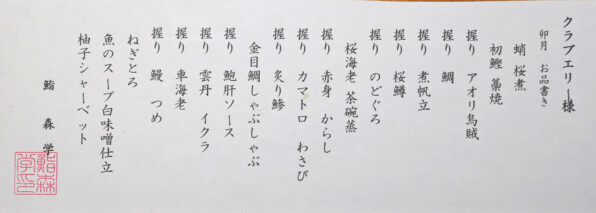 クラブエリー様
卯月　お品書き
蛸 桜煮
初鰹 藁焼
握り アオリ烏賊
握り 鯛
握り 煮帆立
握り 桜鱒
握り のどぐろ
桜海老 茶碗蒸
握り 赤身 からし
握り カマトロ わさび
握り 炙り鯵
金目鯛しゃぶしゃぶ
握り 鮑肝ソース
握り 雲丹 イクラ
握り 車海老
握り 鰻 つめ
ねぎとろ
魚のスープ白味噌仕立
柚子シャーベット
鮨 森 学
鮨森
学印